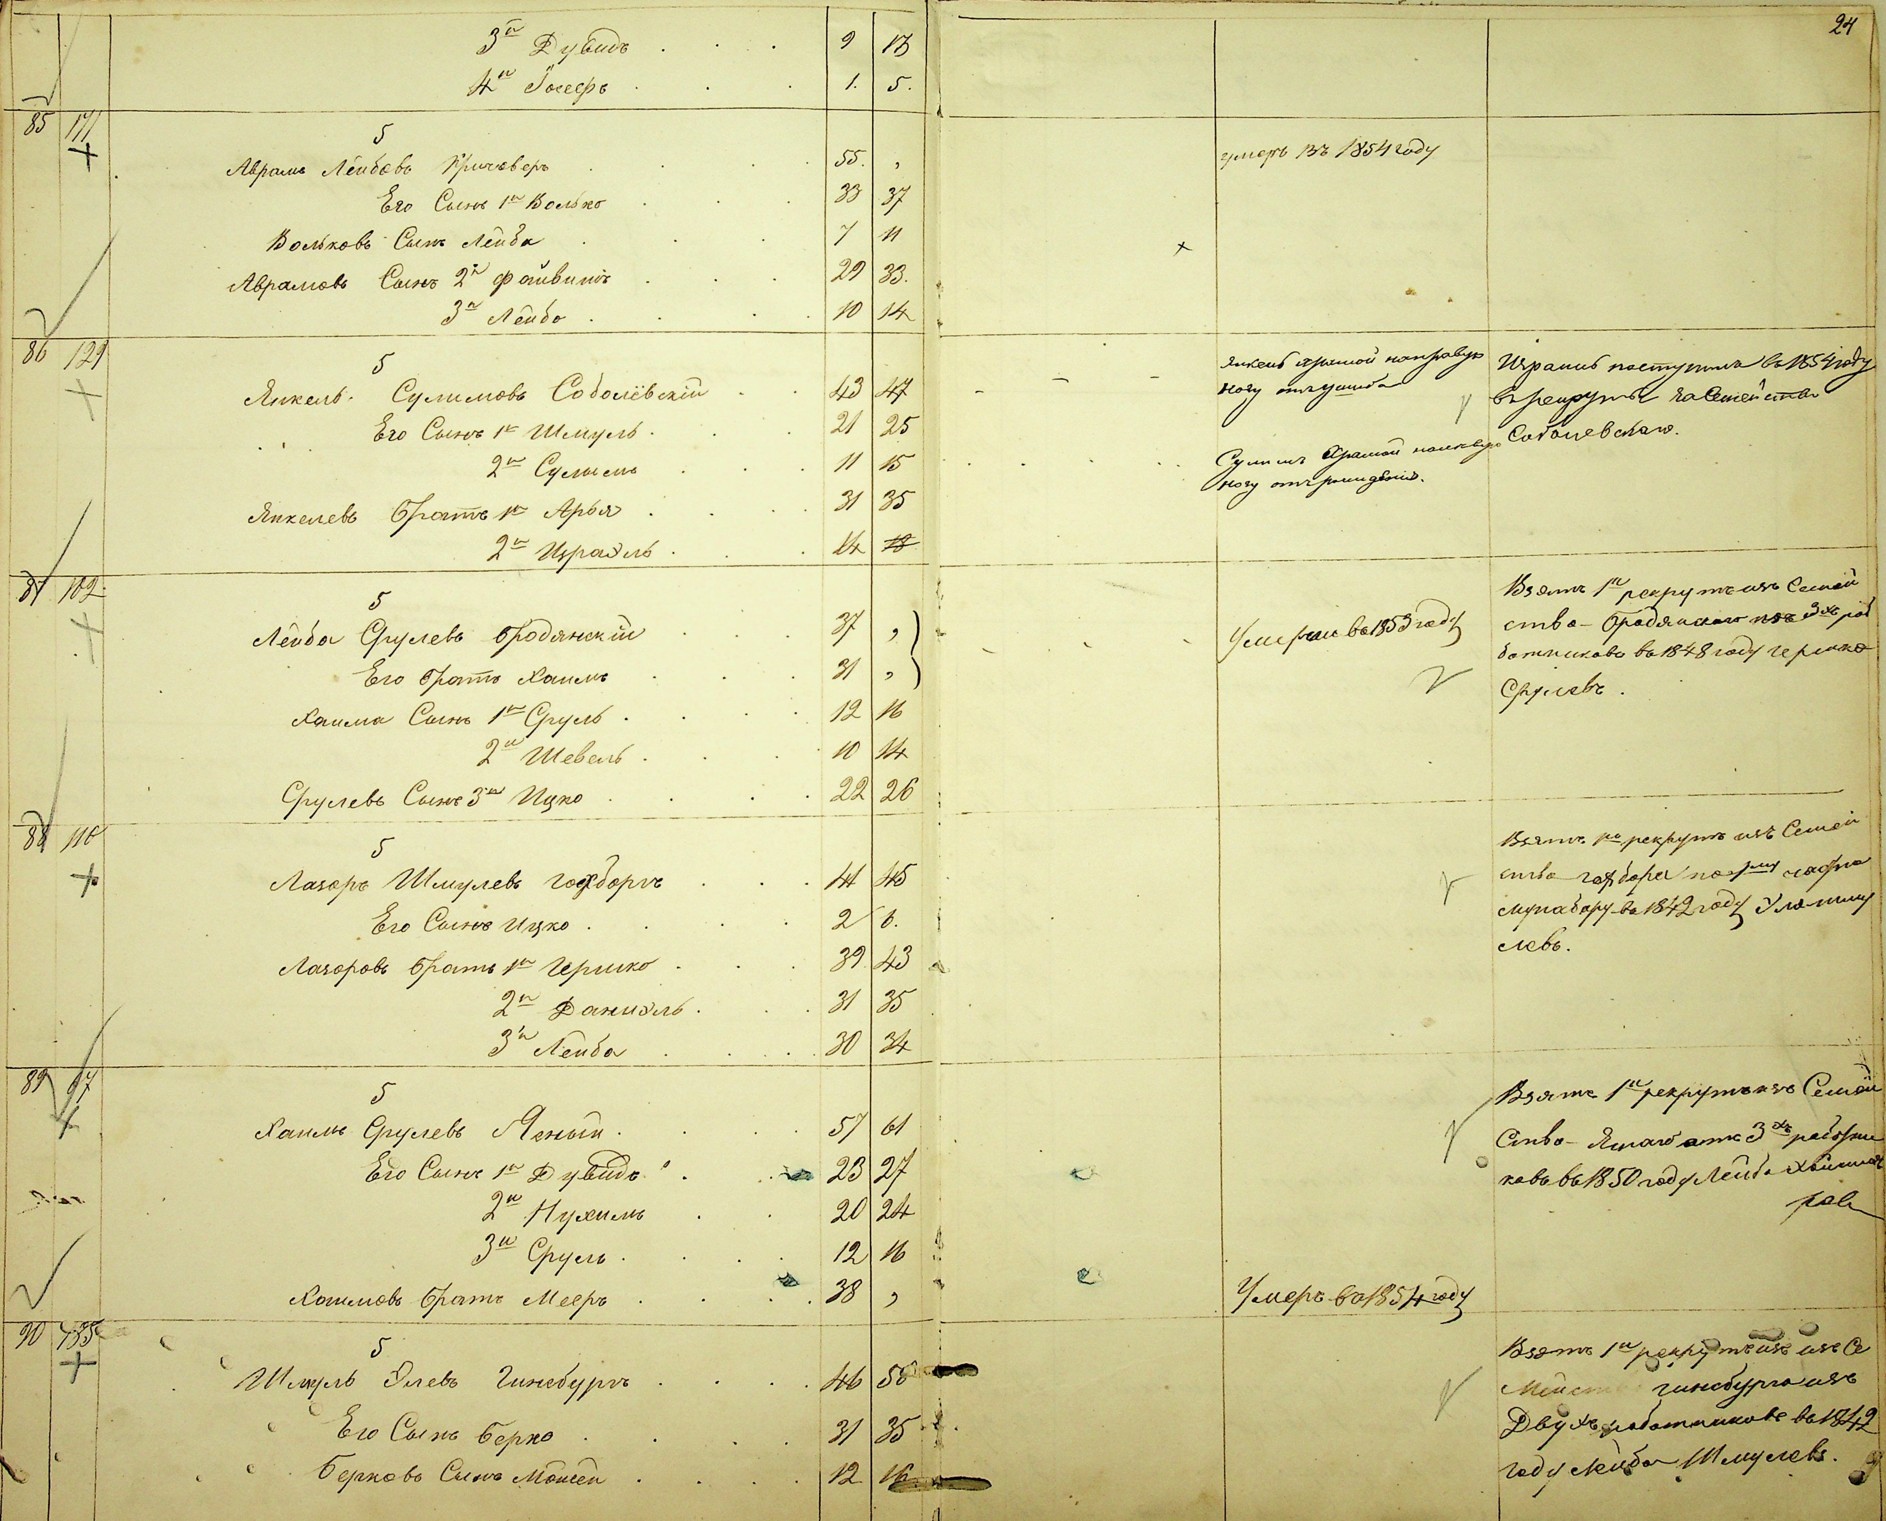 24
3й Дувидъ 9 13
4й Іосефъ 1. 5.
85 171
5
Аврамъ Лейбовъ Кричеверъ 55. „ умеръ въ 1854 году
Его Сынъ 1й Волько 33 37
Вольковъ Сынъ Лейба 7 11
Аврамовъ Сынъ 2й Файвишъ 29 33.
3й Лейба 10 14
86 129
5
Янкель Сулимовъ Соболевскій 43 47
Янкель Хромой на правую
ногу отъ ушиба
Израиль поступилъ въ 1854 году
въ рекруты за Семейство
Соболевскаго.
Его Сынъ 1й Шмуль 21 25
2й Сулимъ 11 15
Сулимъ Хромой на левую
ногу отъ рождения.
Янкелевъ братъ 1й Арья 31 35
2й Израэль 14 18
87 102
5
Лейба Срулевъ Бродянскій 37 „
Умерли въ 1853 году
Взятъ 1й рекрутъ изъ Семей
ства Бродянскаго изъ 3хъ раб
ботниковъ въ 1848 году Гершко
Срулевъ.
Его братъ Хаимъ 31 „
Хаима Сынъ 1й Сруль 12 16
2й Шевель 10 14
Срулевъ Сынъ 3й Ицко 22 26
88
5
Лазоръ Шмулевъ 41 45
Взятъ 1й рекрутъ изъ Семей
ства
въ 1842 году
левъ.
Его Сынъ Ицко 2 6.
Лазоровъ братъ 1й Гершко 39 43
2й Даниэль 31 35
3й Лейба 30 34
89 67
5
Хаимъ Срулевъ Ясный 57 61
Взятъ 1й рекрутъ изъ Семей
ства 3хъ
ковъ въ 1850 году Лейба
Его Сынъ 1й Дувидъ 23 27
2й Нухимъ 20 24
3й Сруль 12 16
Хаимовъ братъ Мееръ 38 „ Умеръ въ 1854 году
90 135
5
Шмуль Элевъ Гинсбургъ 46 50
Взятъ 1й рекрутъ изъ Се
Гинсбурга изъ
Двухъ работниковъ въ 1842
году Лейба Шмулевъ.
Его Сынъ Берко 31 35
Берковъ Сынъ Мошей 12 16